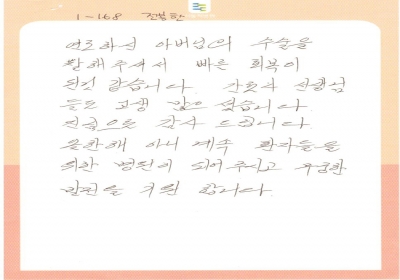 1-168 전봉한
연로하신 아버님의 수술을
잘해 주셔서 빠른 회복이
된것 같습니다. 간호사 선생님
들도 고생 많으셨습니다.
진심으로 감사 드립니다.
올한해 아니 계속 환자들을
위한 병원이 되어 주시고 무궁한
발전을 기원 합니다.